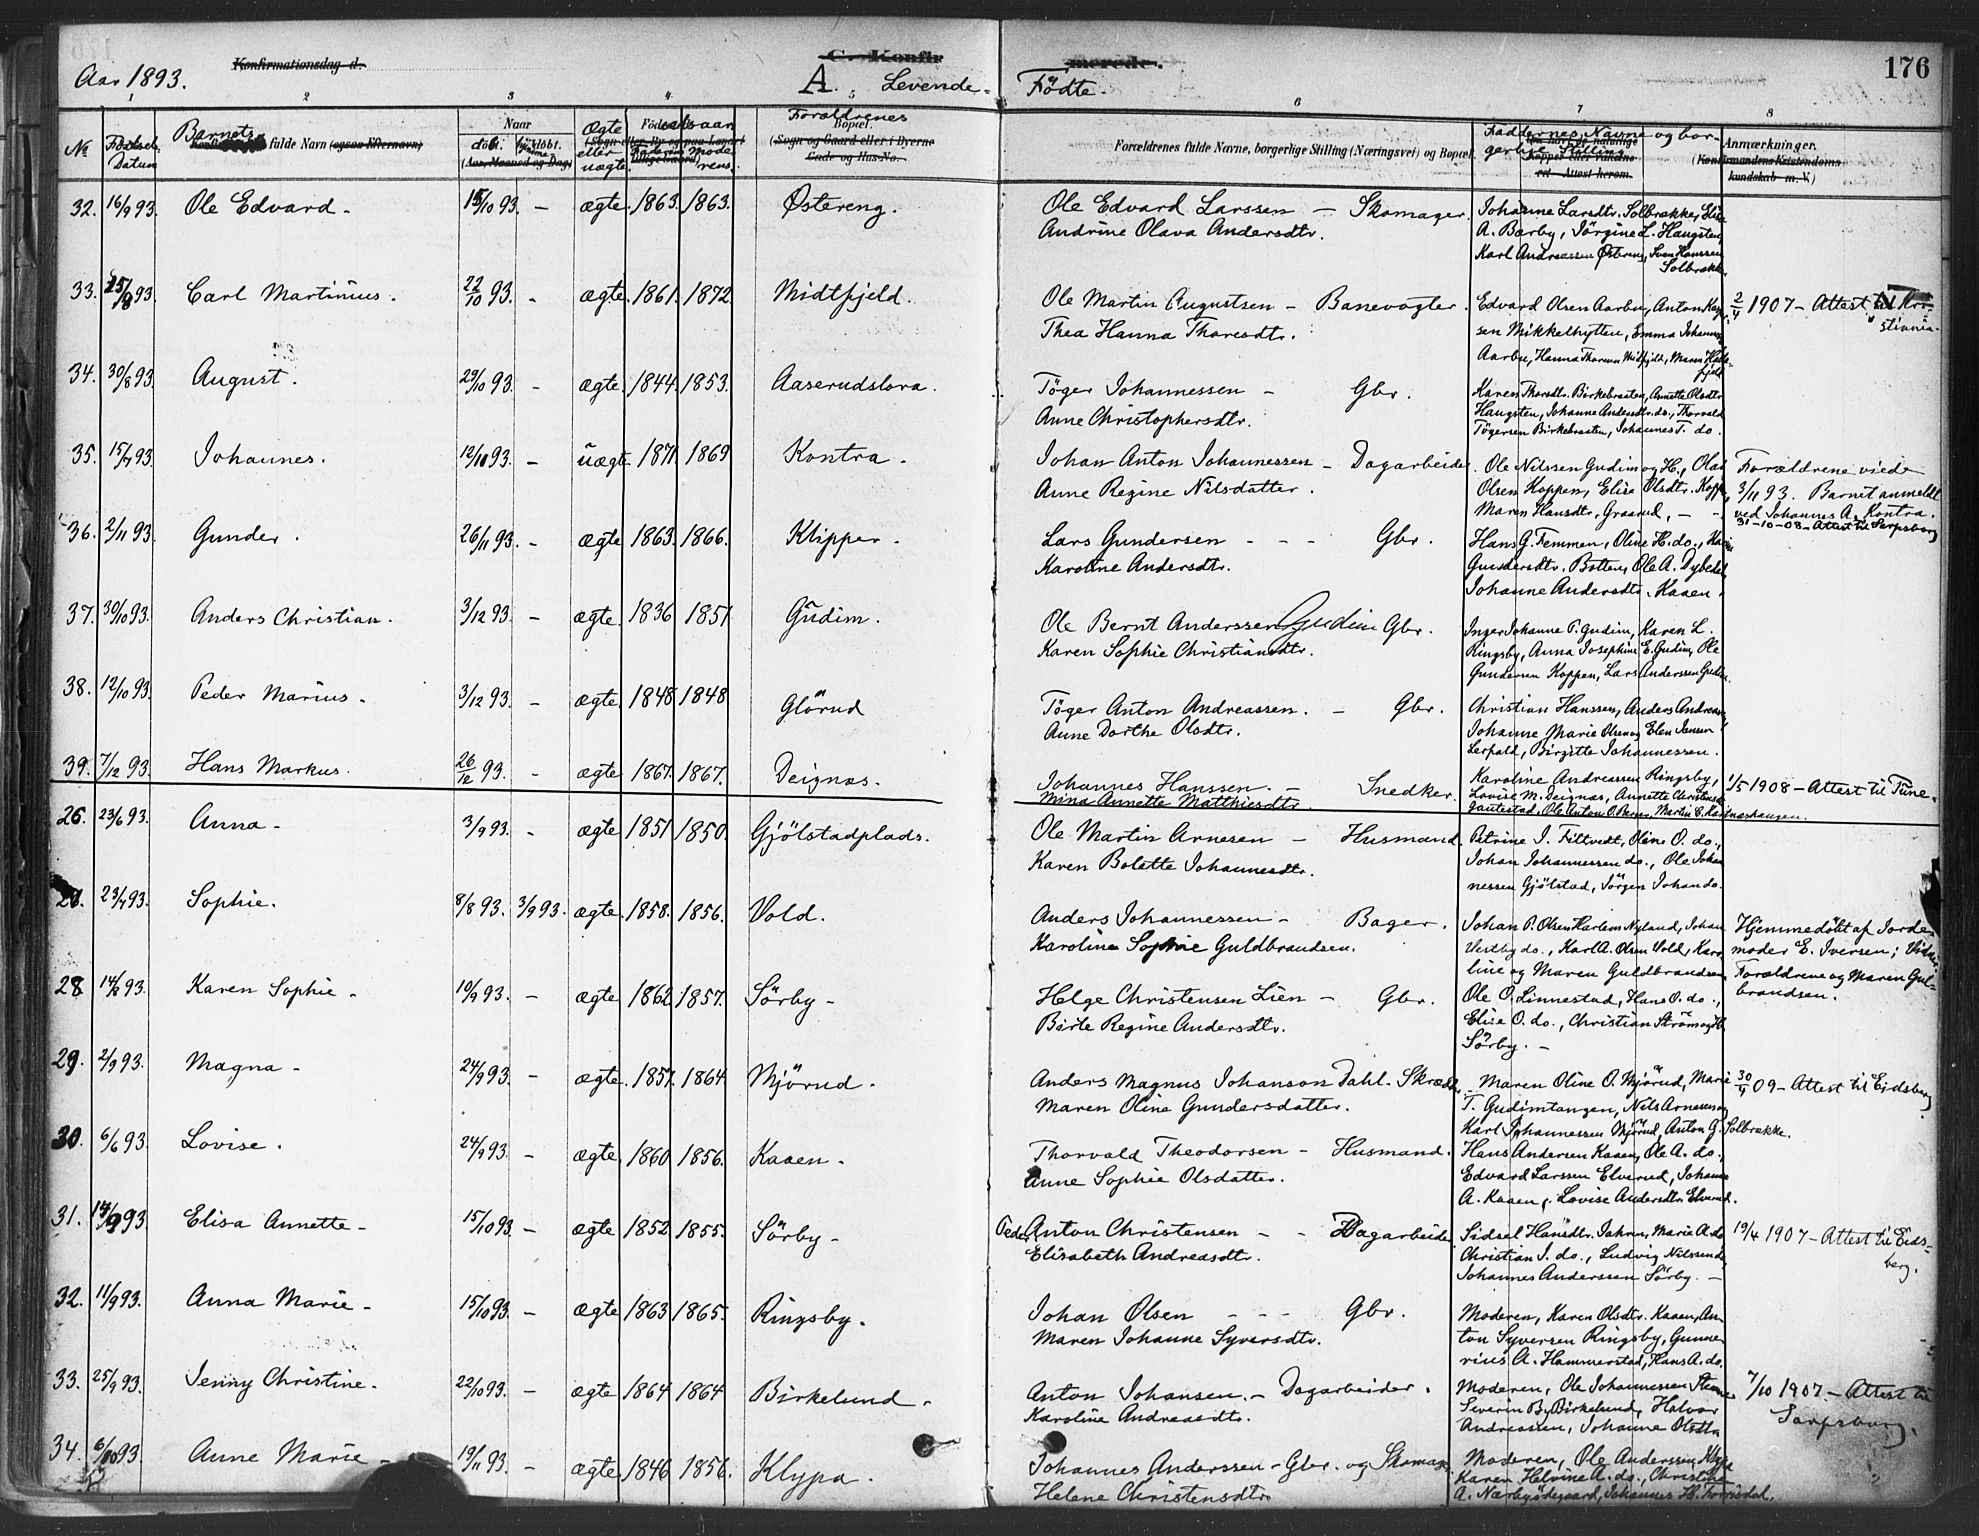 176
Aar 1893.
Konfirmationsdag d.
C. Konfirmerede.
A. Levende Födte.
1 2 3 4 5 6 7 8
№ Födsels Datum
Barnets fulde Navn (ogsaa Efternavn)
Naar döbt. hjemmedöbt. (Aar, Maaned og Dag)
Ægte eller uægte.
Födselsaar Faderens Moderens
Forældrenes Bopæl. (Sogn og Gaard eller i Byerne Gade og Hus-No.
Forældrenes fulde Navne, borgerlige Stilling (Næringsvei) og Bopæl.
Faddernes Navne og borgerlige Stilling
Anmærkninger. (Konfirmandens Kristendomskundskab m. V.)
32. 16/9 93. Ole Edvard. 15/10 93. – ægte. 1863. 1863. Østereng. Ole Edvard Larssen – Skomager. Johanne Larsdtr. Solbrække,
Andrine Olava Andersdtr. A. Barby, Jörgine L. Haugsten,
Karl Andreassen Østereng, Sven Hanssen
Solbrække
33. 93. Carl Martinius. 22/10 93. – ægte. 1861. 1872. Midtfjeld. Ole Martin Augustsen – Banevogter. Edvard Olsen Aarbu, Anton 2/4 1907 – Attest til Kri-
Thea Hanna Thoresdtr. sen Mikkelhytten, Emma stiania.
Aarbu, Hanna
34. 30/8 93. August. 29/10 93. – ægte. 1844. 1853. Aaserudslora. Töger Johannessen – Gbr. Karen Thorsdtr. Birkebraaten, Annette Olsdtr.
Anne Christophersdtr. Haugsten, Johanne Andersdtr. do., Thorvald
Tögersen Birkebraaten, Johannes T. do.
35. 15/7 93. Johannes. 12/11 93. – uægte 1871. 1869 Kontra. Johan Anton Johannessen – Dagarbeider. Ole Nilssen Gudim og H., Forældrene viede
Anne Regine Nilsdatter. Olsen Koppen, Elise Olsdtr. Koppen, 3/11 93. Barnet anmeldt
Maren Hansdtr. Graarud, – ved Johannes A. Kontra.
31-10-08 – Attest til Sarpsborg
36. 2/11 93. Gunder. 26/11 93. – ægte 1863. 1866. Klipper. Lars Gundersen – – – Gbr. Hans G. Femmen, Oline H. do.,
Karoline Andersdtr. Gundersdtr. Botten, Ole A. Dybedal,
Johanne Andersdtr. Kaaen.
37. 30/10 93. Anders Christian. 3/12 93. – ægte. 1836 1851 Gudim. Ole Bernt Anderssen Gudim Gbr. Inger Johanne P. Gudim, Karen L.
Karen Sophie Christiansdtr. Ringsby, Anna Josephine E. Gudim, Ole
Gundersen Koppen, Lars Anderssen Gudim.
38. 12/10 93. Peder Marius. 3/12 93. – ægte. 1848 1848 Glörud Töger Anton Andreassen. – Gbr. Christian Hanssen, Anders
Anne Dorthe Olsdtr. Johanne Marie Olsen og Elen Jensen
Lerfald, Birgitte Johannessen.
39. 7/12 93. Hans Markus. 26/12 93. – ægte 1867. 1867. Deignæs. Johannes Hanssen. – Snedker. Karoline Andreassen Ringsby, 1/5 1908 – Attest til Tune.
Mina Annette Matthiesdtr. Lovise M. Deignæs, Annette
Gautestad, Ole Anton O.
26. 23/6 93. Anna – 3/9 93. – ægte 1851 1850. Gjölstadplads. Ole Martin Arnesen – Husmand. Petrine J. Filtvedt, Oline O. do.,
Karen Bolette Johannesdtr. Johan Johannessen do., Ole Johan
nessen Gjölstad, Jörgen Johan do.
23/7 93. Sophie. 8/8 93. 3/9 93. ægte 1858. 1856. Vold. Anders Johannessen – Bager. Johan P. Olsen Karlem Nyland, Johan Hjemmedöbt af Jorde-
Karoline Sophie Guldbrandsen. Vestby do., Karl A. Olsen Vold, Karo moder E. Iversen;
line og Maren Guldbrandsen Forældrene og Maren Gul-
brandsen.
28 14/8 93. Karen Sophie – 10/9 93. – ægte. 1862 1857. Sörby – Helge Christensen Lien – Gbr. Ole O. Linnestad, Hans O. do.,
Birte Regine Andersdtr. Elise O. do., Christian
Sörby. –
29. 2/9 93. Magna – 24/9 93. – ægte. 1857. 1864 Mjörud. Anders Magnus Johanson Dahl – Maren Oline O. Mjörud, Marie 30/4 09 – Attest til Eidsberg
Maren Oline Gundersdatter. T. Gudimtangen, Nils Arnesen og
Karl Johannessen Mjörud, Anton G. Solbrække.
30. 6/6 93. Lovise. 24/9 93. – ægte. 1860 1856. Kaaen. Thorvald Theodorsen – Husmand. Hans Andersen Kaaen, Ole A. do.,
Anne Sophie Olsdatter. Edvard Larssen Elverud, Johanne
A. Kaaen, Lovise Andersdtr. Elverud.
31. 14/9 93 Elisa Annette – 15/10 93 – ægte 1852 1855. Sörby – Peder Anton Christensen – – Dagarbeider. Sidsel Hansdtr. Jahren, Marie A. do 19/4 1907 – Attest til Eids-
Elisabeth Andreasdtr. Christian J. do., Ludvig Nilssen do berg.
Johannes Anderssen Sörby. –
32. 11/9 93. Anna Marie – 15/10 93. – ægte 1863 1865. Ringsby. Johan Olsen – – – Gbr. Moderen, Karen Olsdtr. Kaaen, An
Maren Johanne Syversdtr. ton Syversen Ringsby, Gunne
rius A. Hammerstad, Hans A. do.
33. 25/9 93. Jenny Christine. 22/10 93. – ægte 1864 1864 Birkelund. Anton Johansen. – Dagarbeider. Moderen, Ole Johannessen 7/10 1907 – Attest til
Karoline Andreasdtr. Severin B. Birkelund, Halvor Sarpsborg.
Andreassen, Johanne Olsdtr
34. 6/10 93 Anne Marie – 19/11 93. – ægte 1846 1856. Klypa. Johannes Anderssen – Gbr. og Skomager Moderen, Ole Anderssen
Helene Christensdtr Karen Helvine A. do., Christine
A. Nærbyödegaard, Johannes H.